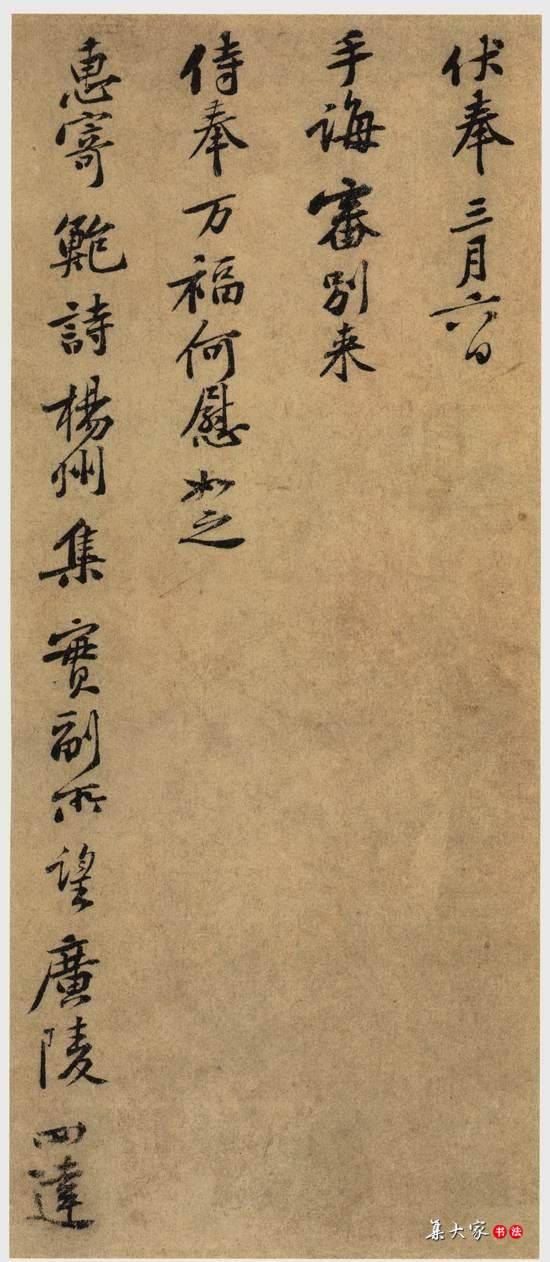 伏奉三月六日
手誨審別来
侍奉万福何慰如之
惠寄鮑詩楊州集實副所望廣陵四達
集大家书法